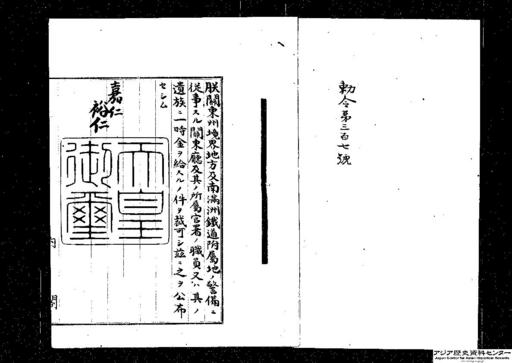 勅令第三百七號
朕關東州境界地方及南滿洲鐵道附屬地ノ警備ニ
從事スル關東廳及其ノ所屬官署ノ職員又ハ其ノ
遺族ニ一時金ヲ給スルノ件ヲ裁可シ茲ニ之ヲ公布
セシム
嘉仁
裕仁
天皇
御璽
内閣
アジア歴史資料センター
Japan Center for Asian Historical Records